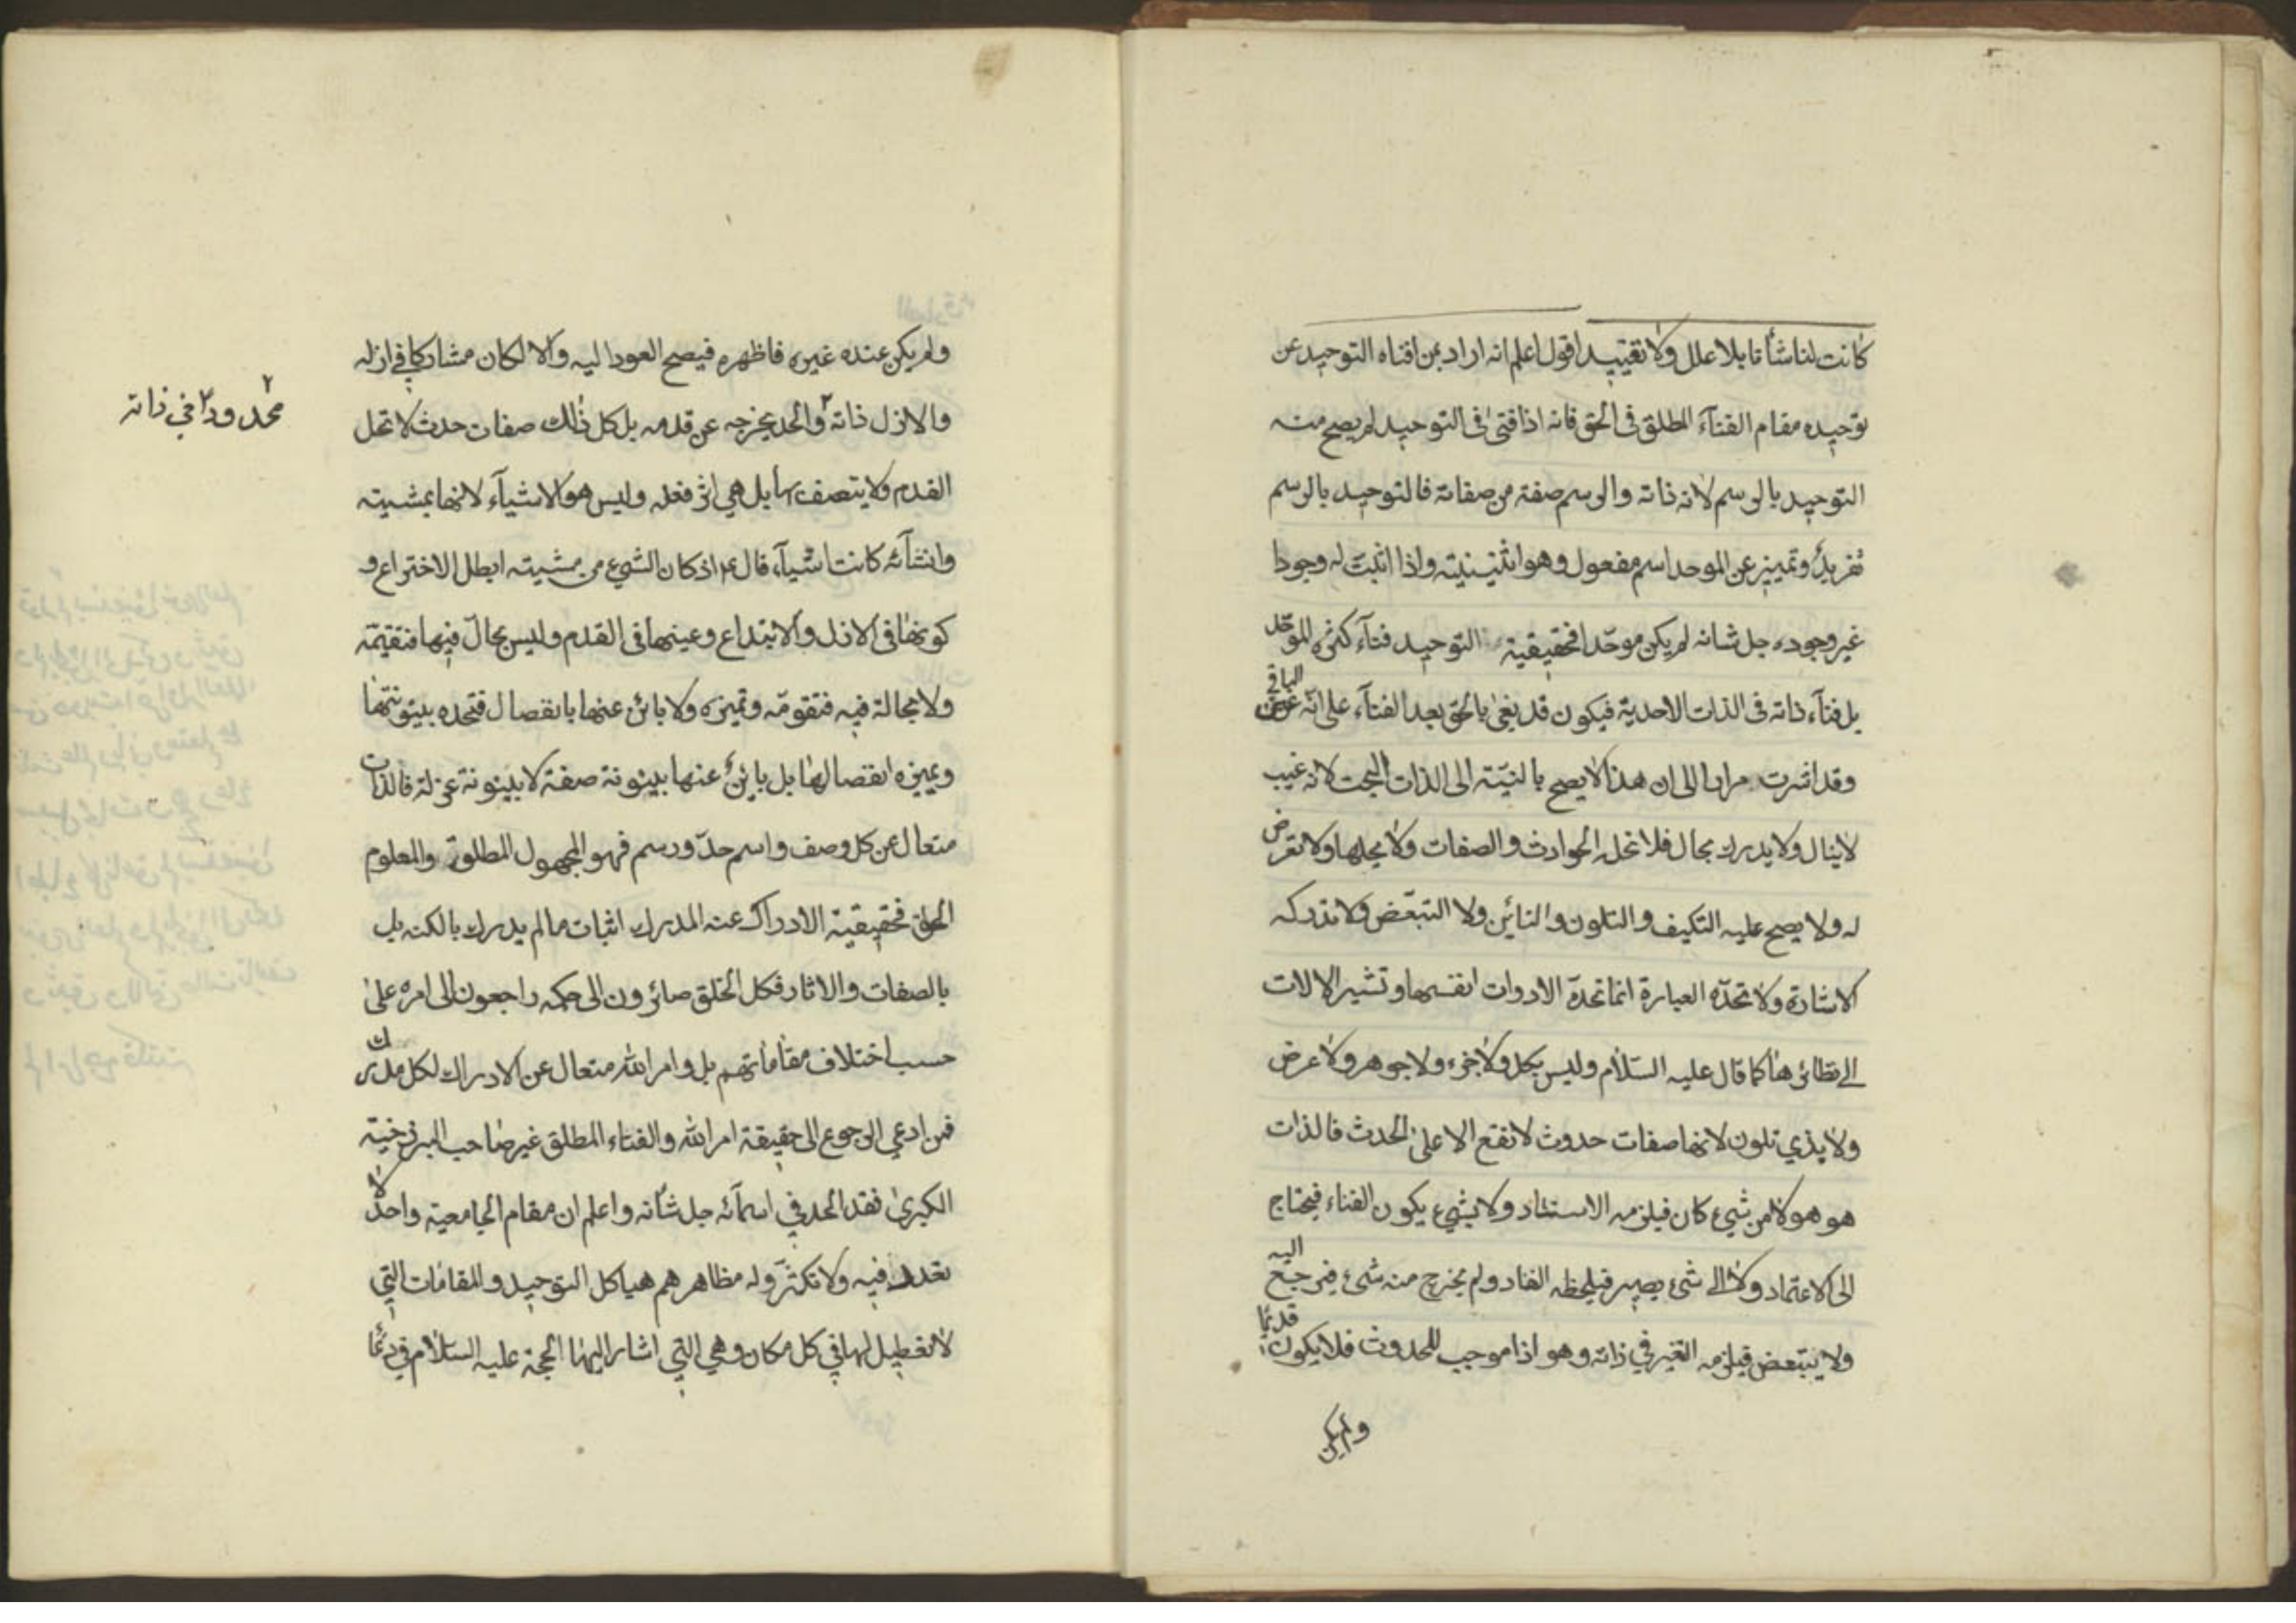 كانت لنا شأنا بلا علل ولا تقييد اقول اعلم انه اراد بمن افناه التوحيد عن
توحيده مقام الفنآء المطلق فى الحق فانه اذا فنى فى التوحيد لم يصح منه
التوحيد بالرسم لانه ذاته والرسم صفة من صفاته فالتوحيد بالرسم
تفريد وتمييز عن الموحد اسم مفعول وهو اثنينيته واذا اثبت له وجودا
غير وجوده جل شانه لم يكن موحّدا فحقيقية التوحيد فنآء كثره الموحّد
بل فنآء ذاته فى الذات الاحدية فيكون قد بقى بالحق بعد الفنآء على انّه عين الباقى
وقد اشرت مرارا الى ان هذا لا يصح بالنسبة الى الذات البحت لانه غيب
لاينال ولا يدرك بحال فلا تحله الحوادث والصفات ولا يحلها ولا تعرض
له ولا يصح عليه التكيف والتلون والتاين ولا التبعّض ولا تدركه
الاشارة ولا تحدّه العبارة انما تحدّ الادوات انفسها وتشير الالات
الى نظائرها كما قال عليه السّلام وليس بكل ولا جزء ولا جوهر ولا عرض
ولا بذي تلون لانها صفات حدوث لا تقع الا على الحدث فالذات
هو هو لا من شيء كان فيلزمه الاستناد ولا بشيء يكون الفناء فيحتاج
الى الاعتماد ولا الى شيء يصير فيلحظه النفاد ولم يخرج منه شيء فيرجع اليه
ولا يتبعض فيلزمه التغير في ذاته وهو اذا موجب للحدوث فلا يكون قديما
ولم يكن
ولم يكن عنده غيره فاظهره فيصح العود اليه والا لكان مشاركا في ازله
والازل ذاته ٢ والحد يخرجه عن قدمه بل كل ذلك صفات حدث لا تحل
٢ محدودا ٢ في ذاته
القدم ولا يتصف بها بل هي اثر فعله وليس هو الاشيآء لانها بمشيته
وانشآئه كانت اشيآء قال ع اذ كان الشيء من مشيته ابطل الاختراع و
كونها فى الازل والابتداع وعينها فى القدم وليس بحالّ فيها فتقيمه
ولا بحالة فيه فتقومه وتميزه ولا بائن عنها بانفصال فتحده بينونتها
ويميزه انفصالها بل باين عنها بينونة صفة لا بينونة عزلة فالذات
متعال عن كل وصف واسم حدّ ورسم فهو المجهول المطلق والمعلوم
الحق فحقيقية الادراك عنه المدرك اثبات مالم يدرك بالكنه بل
بالصفات والاثار فكل الخلق صائرون الى حكمه راجعون الى امره على
حسب اختلاف مقاماتهم بل وامر الله متعال عن الادراك لكل مدرك
فمن ادعي الرجوع الى حقيقة امر الله والفناء المطلق غير صاحب البرزخية
الكبرى فقد الحد في اسمآئه جل شأنه واعلم ان مقام الجامعية واحد لا
تعدد فيه ولا تكثر وله مظاهر هم هياكل التوحيد والمقامات التي
لا تعطيل لها في كل مكان وهي التي اشار اليها الحجة عليه السّلام في دعا